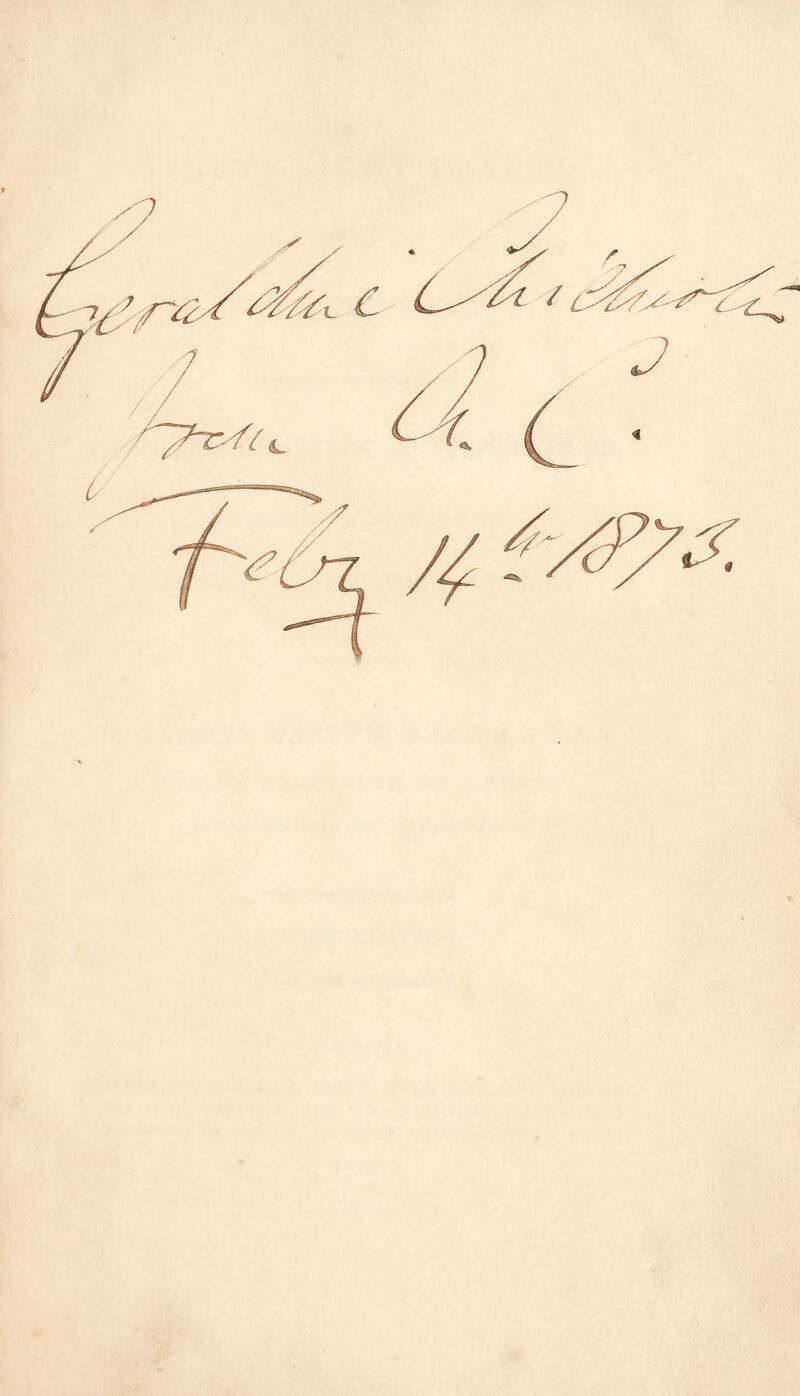 Geraldine Chisholm
from A. C.
Feby 14th 1873.